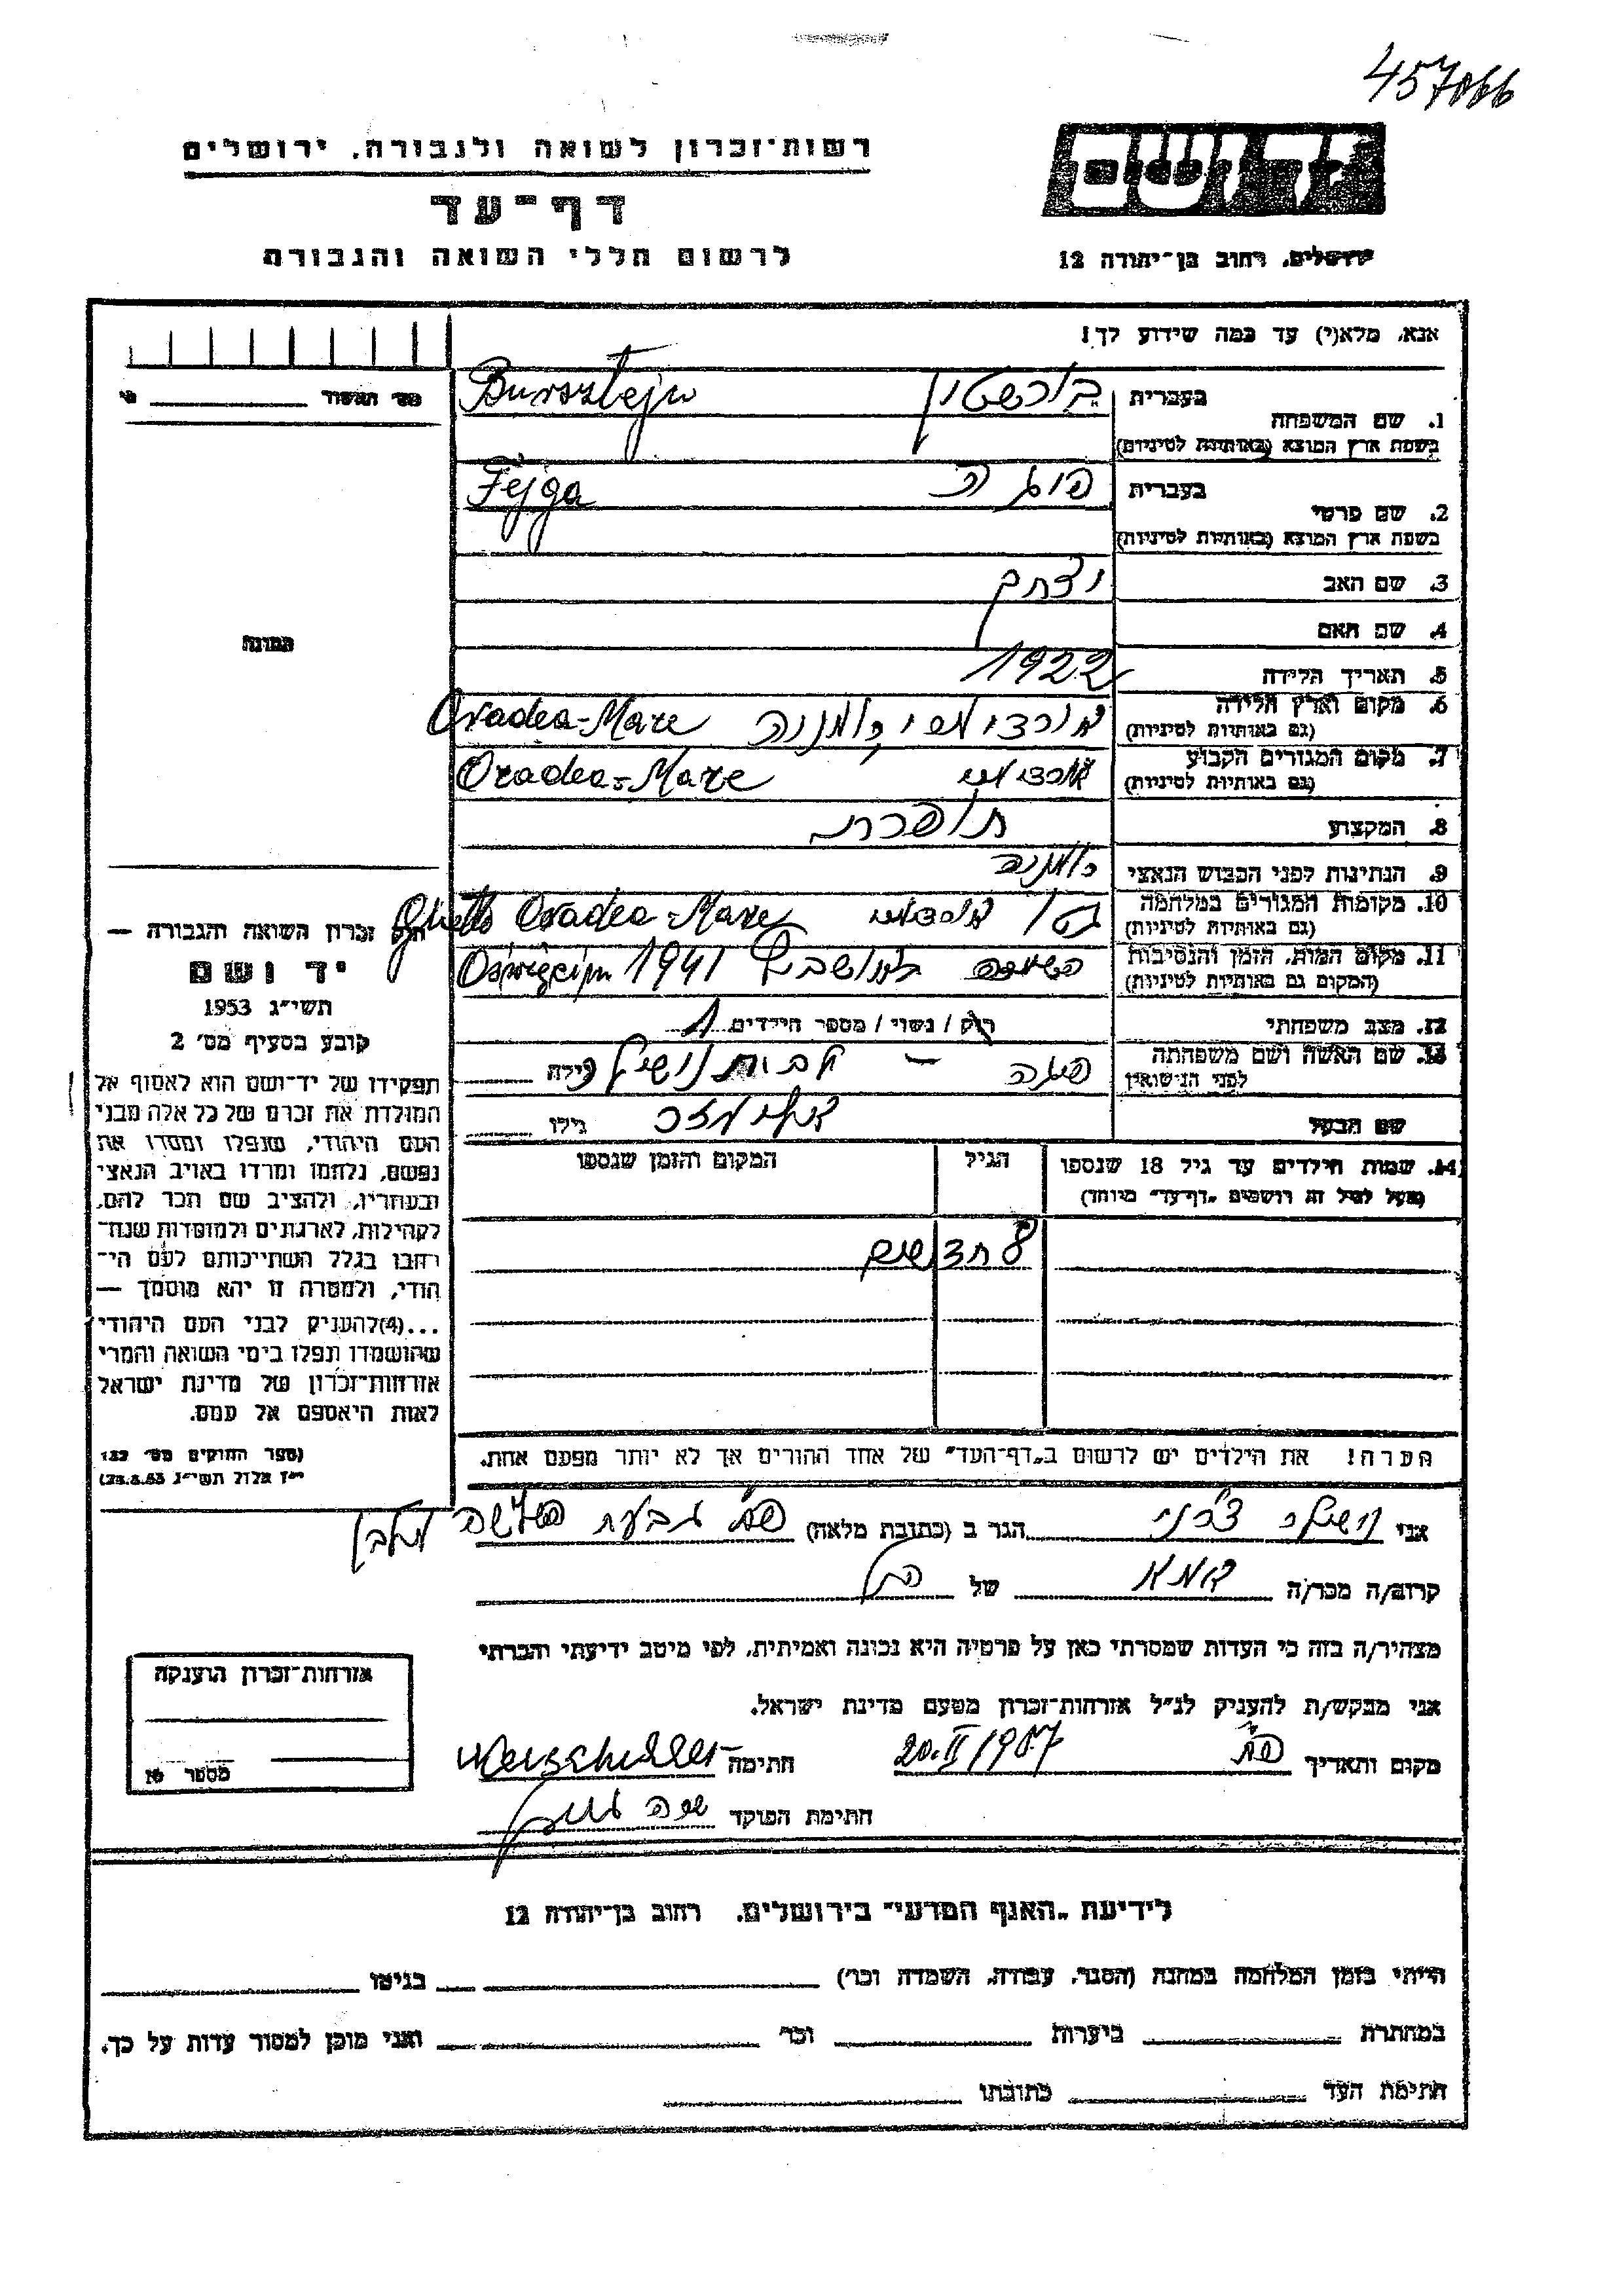 457066
רשות־זכרון לשואה ולגבורה, ירושלים
דף־עד
לרשום חללי השואה והגבורה
ידושם
ירושלים, רחוב בן־יהודה 12
אנא, מלא(י) עד כמה שידוע לך!
1. שם המשפחה
בעברית
בשפת ארץ המוצא (באותיות לטיניות)
בורשטין Bursztejn
2. שם פרטי
בעברית
בשפת ארץ המוצא (באותיות לטיניות)
פיגה Fejga
3. שם האב יצחק
4. שם האם
5. תאריך הלידה 1922
6. מקום וארץ הלידה
(גם באותיות לטיניות)
רומניה Oradea-Mare
7. מקום המגורים הקבוע
(גם באותיות לטיניות)
Oradea-Mare
8. המקצוע תופרת
9. הנתינות לפני הכבוש הנאצי רומניה
10. מקומות המגורים במלחמה
(גם באותיות לטיניות)
גטו Ghetto Oradea-Mare
11. מקום המות, הזמן והנסיבות
(המקום גם באותיות לטיניות)
השמדה Oświęcim 1941
12. מצב משפחתי רוק / נשוי / מספר הילדים 1
13. שם האשה ושם משפחתה
לפני הנישואין
פיגה – לבית גילה
שם הבעל גילו
14. שמות הילדים עד גיל 18 שנספו
(מעל לגיל זה רושמים „דף־עד" מיוחד)
הגיל
המקום והזמן שנספו
8 חדשים
הערה! את הילדים יש לרשום ב„דף־העד" של אחד ההורים אך לא יותר מפעם אחת.
מס' האשור
התמונה
חוק זכרון השואה והגבורה —
יד ושם
תשי"ג 1953
קובע בסעיף מס' 2
תפקידו של יד־ושם הוא לאסוף אל
המולדת את זכרם של כל אלה מבני
העם היהודי, שנפלו ומסרו את
נפשם, נלחמו ומרדו באויב הנאצי
ובעוזריו, ולהציב שם וזכר להם,
לקהילות, לארגונים ולמוסדות שנח־
רבו בגלל השתייכותם לעם הי־
הודי, ולמטרה זו יהא מוסמך —
...(4)להעניק לבני העם היהודי
שהושמדו ונפלו בימי השואה והמרי
אזרחות־זכרון של מדינת ישראל
לאות היאספם אל עמם.
(ספר החוקים מס' 132
י"ז אלול תשי"ג 28.8.53)
אני הגר ב (כתובת מלאה) פ"ת גבעת השלשה
קרוב/ה מכר/ה של
מצהיר/ה בזה כי העדות שמסרתי כאן על פרטיה היא נכונה ואמיתית, לפי מיטב ידיעתי והכרתי
אני מבקש/ת להעניק לנ"ל אזרחות־זכרון מטעם מדינת ישראל.
מקום ותאריך פ"ת 20.II 1957 חתימה
חתימת הפוקד
אזרחות־זכרון הוענקה
מספר
לידיעת „האגף המדעי" בירושלים, רחוב בן־יהודה 12
הייתי בזמן המלחמה במחנה (הסגר, עבודה, השמדה וכו') בגיטו
במחתרת ביערות וכו' ואני מוכן למסור עדות על כך.
חתימת העד כתובתו